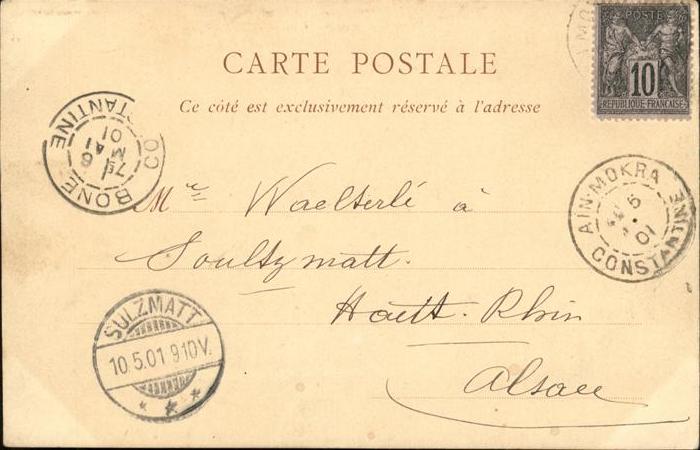 CARTE POSTALE
POSTE
10
REPUBLIQUE FRANÇAISE
Ce côté est exclusivement réservé à l'adresse
BONE CONSTANTINE
6 MAI 01
AIN-MOKRA
5
01
CONSTANTINE
Waelterlé à
Soultzmatt.
Hautt-Rhin
Alsace
SULZMATT
10.5.01 910V.